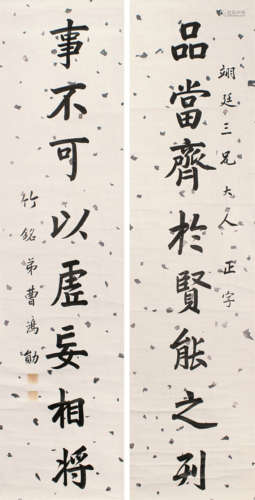 品當齊於賢能之列
翊廷三兄大人正字
事不可以虛妄相將
竹銘弟曹鴻勛